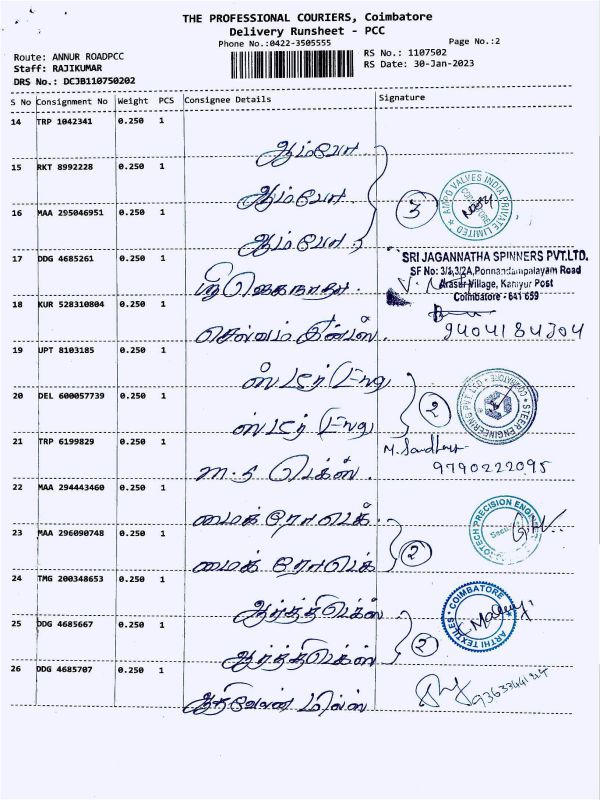 THE PROFESSIONAL COURIERS, Coimbatore
Delivery Runsheet - PCC
Phone No.:0422-3505555
Page No.:2
Route: ANNUR ROADPCC
RS No.: 1107502
Staff: RAJIKUMAR
RS Date: 30-Jan-2023
DRS No.: DCJB110750202
S No Consignment No Weight PCS Consignee Details Signature
14 TRP 1042341 0.250 1
ஆம்போ
15 RKT 8992228 0.250 1
ஆம்போ
16 MAA 295046951 0.250 1
ஆம்போ
3
AMPO VALVES INDIA PRIVATE LIMITED
COIMBATORE
17 DDG 4685261 0.250 1
ஸ்ரீ ஜெகநாதா
SRI JAGANNATHA SPINNERS PVT.LTD.
SF No: 3/1,3/2A,Ponnandampalayam Road
Arasur Village, Kaniyur Post
Coimbatore - 641 659
18 KUR 528310804 0.250 1
செல்வம்
9404184304
19 UPT 8103185 0.250 1
ஸ்டீர் Eng
20 DEL 600057739 0.250 1
ஸ்டீர் Eng
2
STEER ENGINEERING PVT. LTD.
COIMBATORE
21 TRP 6199829 0.250 1
டெக்ஸ்
9790222095
22 MAA 294443460 0.250 1
மைக்ரோடெக்
23 MAA 296090748 0.250 1
மைக்ரோடெக்
2
PRECISION
24 TMG 200348653 0.250 1
ஆர்த்திடெக்ஸ்
25 DDG 4685667 0.250 1
ஆர்த்திடெக்ஸ்
2
COIMBATORE
ARTHI TEXTILES
26 DDG 4685707 0.250 1
ஆதிவேலன் மில்ஸ்